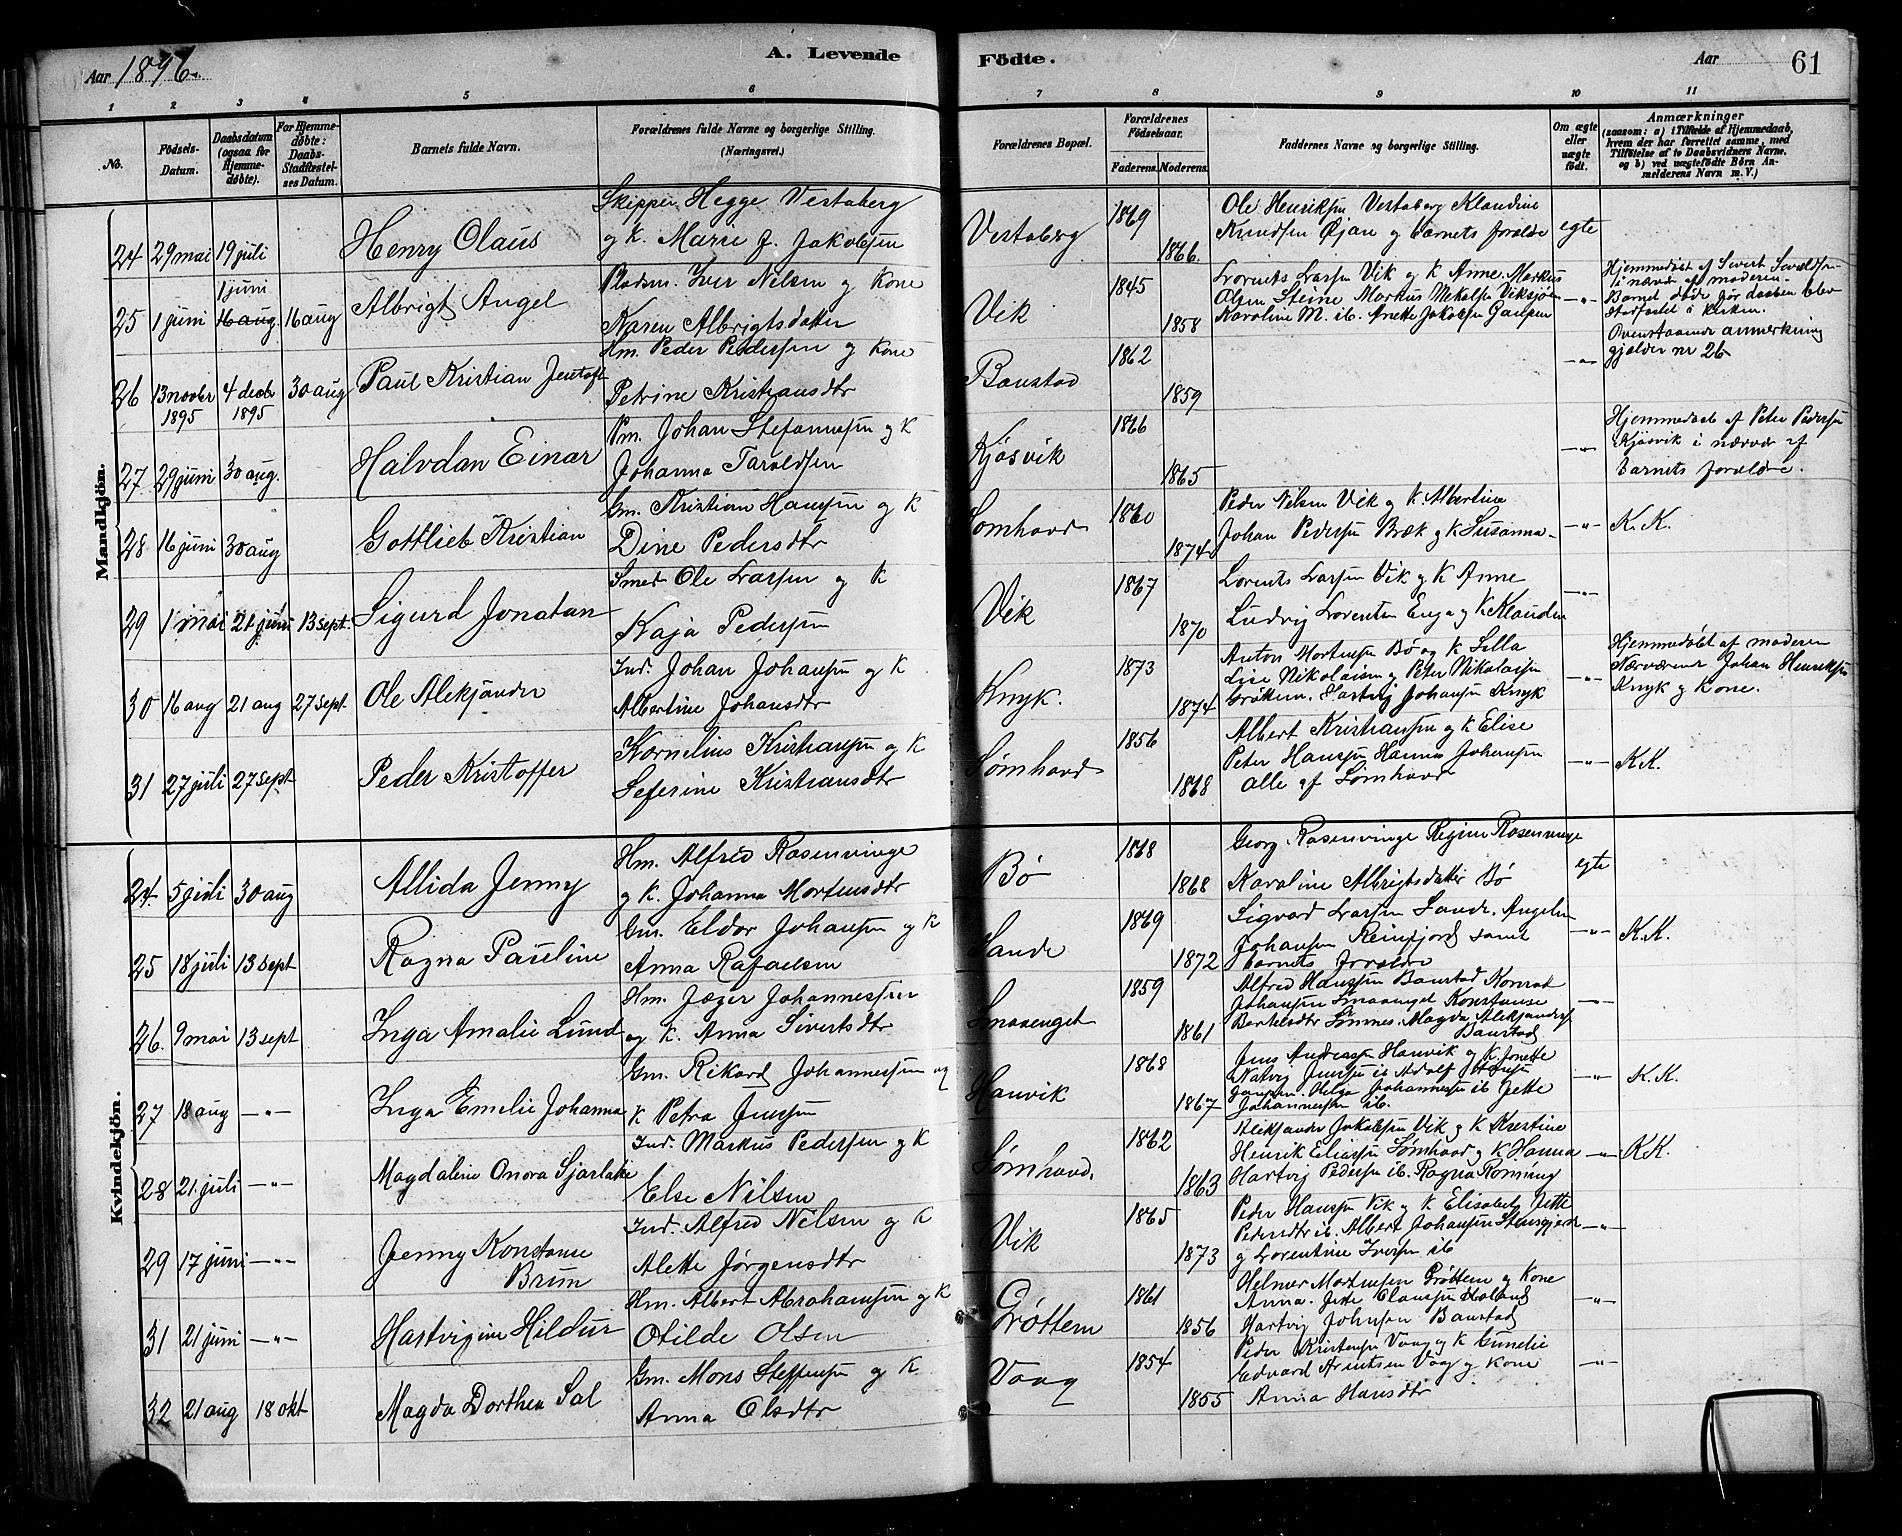 Aar 1896.
A. Levende
Födte.
Aar
61
1 2 3 4 5 6 7 8 9 10 11
No.
Födsels-Datum.
Daabsdatum (ogsaa for Hjemmedøbte).
For Hjemmedøbte: Daabs-Stadfæstelses Datum.
Barnets fulde Navn.
Forældrenes fulde Navne og borgerlige Stilling.
(Næringsvei.)
Forældrenes Bopæl.
Forældrenes Födselsaar.
Faderens. Moderens.
Faddernes Navne og borgerlige Stilling.
Om ægte eller uægte født.
Anmærkninger
(saasom: a) i Tilfælde af Hjemmedaab, hvem der har forrettet samme, med Tilföielse af to Daabsvidners Navne, og b) ved uægtefödte Börn Anmelderens Navn m. V.)
Mandkjön.
24 29 mai 19 juli Henry Claus
Skipper Hegge Vestaberg
og K. Marie J. Jakobsen
Vestaberg 1869 1866.
Ole Henriksen Vestaberg Klaudine
Knudsen Øjan og barnets forældre
egte
25 1 juni 1 juni 16 aug 16 aug Albrigt Angel
Pladsm. Iver Nilsen og Kone
Karen Albrigtsdatter
Vik 1845 1858
Lorents Larsen Vik og K Anne. Markus
Olsen Steine Markus Nekolsen Viksjøen
Karoline M. ib. Anette Jakobsen Gaupen
-"-
Hjemmedøbt af Sivert
i nærvær af moderen.
Barnet døde før daaben blev
stadfæstet i kirken.
Ovenstaaende anmerkning
gjælder nr 26
26 13 novbr 1895 4 decbr 1895 30 aug Paul Kristian Jentoft
Hm. Peder Pedersen og Kone
Petrine Kristiansdtr
Baustad 1862 1859
-"-
27 29 juni 30 aug. Halvdan Einar
Pm. Johan Stefanussen og K
Johanna Taraldsen
Kjøsvik 1866 1865
-"-
Hjemmedøbt af Peter Pedersen
Kjøsvik i nærvær af
barnets forældre.
28 16 juni 30 aug Gottlieb Kristian
Gm. Kristian Hansen og K
Dine Pedersdtr
Sømhovd 1860 1874
Peder Nilsen Vik og K. Albertine
Johan Pedersen Bræk og K Susanna
-"- K. K.
29 1 mai 21 juni 13 sept. Sigurd Jonatan
Smed Ole Larsen og K
Kaja Pedersen
Vik 1867 1870
Lorents Larsen Vik og K Anne
Ludvig Lorentsen Enga og K Klaudine
-"-
30 16 aug 21 aug 27 sept. Ole Aleksander
Ind. Johan Johansen og K
Albertine Johansdtr
Knyk. 1873 1874
Anton Mortensen Bø og K Silla
Lise Nikolaisen og Peter Nikolaisen
Grøttem. Hartvig Johansen Knyk
-"-
Hjemmedøbt af moderen
Nærværende Johan Henriksen
Knyk og Kone.
31 27 juli 27 sept Peder Kristoffer
Kornelius Kristiansen og K
Seferine Kristiansdtr
Sømhovd 1856 1868
Albert Kristiansen og K Elise
Peter Hansen Hanna Johansen
alle af Sømhovd
-"- K.K.
Kvindekjön.
24. 5 juli 30 aug Allida Jenny
Hm. Alfred Rosenvinge
og K. Johanna Mortensdtr
Bø 1868 1868
Georg Rosenvinge Regine Rosenvinge
Karoline Albrigtsdatter Bø
egte
25 18 juli 13 sept Ragna Pauline
Gm. Eldor Johansen og K
Anna Rafaelsen
Sande 1869 1872
Sigvard Larsen Sande. Angelin
Johansen Reinfjord samt
barnets forældre
-"- K.K.
26. 9 mai 13 sept Inga Amalie Lund
Hm. Jæger Johannessen
og K. Anna Sivertsdtr
Smaaenget 1859 1861
Alfred Hansen Baustad Konrad
Johansen Smaaenget Konstanse
Bertelsdtr Sømnes. Magda Aleksanders
Baustad
-"-
27 18 aug -"- Inga Emelie Johanna
Gm. Rikard Johannessen og
K Petra Jensen
Hauvik 1868 1867
Jens Andersen Hauvik og K Jonette
Natvig Jensen ib Adolf
Helga Johannessen ib Jette
Johannessen ib.
-"- K.K.
28 21 juli -"- Magdalene Onora Sjarlatte
Ind. Markus Pedersen og K
Else Nilsen
Sømhovd. 1862 1863
Aleksander Jakobsen Vik og K Kristine
Henrik Eliassen Sømhovd og K Hanna
Hartvig Pedersen ib. Ragna
-"- K.K.
29 17 juni -"- Jenny Konstanse
Brun
Ind. Alfred Nilsen og K
Alette Jørgensdtr
Vik 1865 1873
Peder Hansen Vik og K Elisabeg Jette
Pedersdtr ib. Albert Johansen Stensgjerde
og Lorentine Iversen ib
-"-
31 21 juni -"- Hartvigine Hildur
Hm. Albert Abrahamsen og K
Otilde Olsen
Grøttem 1861 1856
Helmer Mortensen Grøttem og Kone
Anna. Jette Clausen Holand
Hartvig Johnsen Baustad
-"-
32 21 aug 18 okt Magda Dorthea Sal
Gm. Mons Steffensen og K
Anna Olsdtr
Vaag 1854 1855
Peder Kristensen Vaag og K Gunelie
Edvard Arentsen Vaag og Kone
Anna Hansdtr
-"-